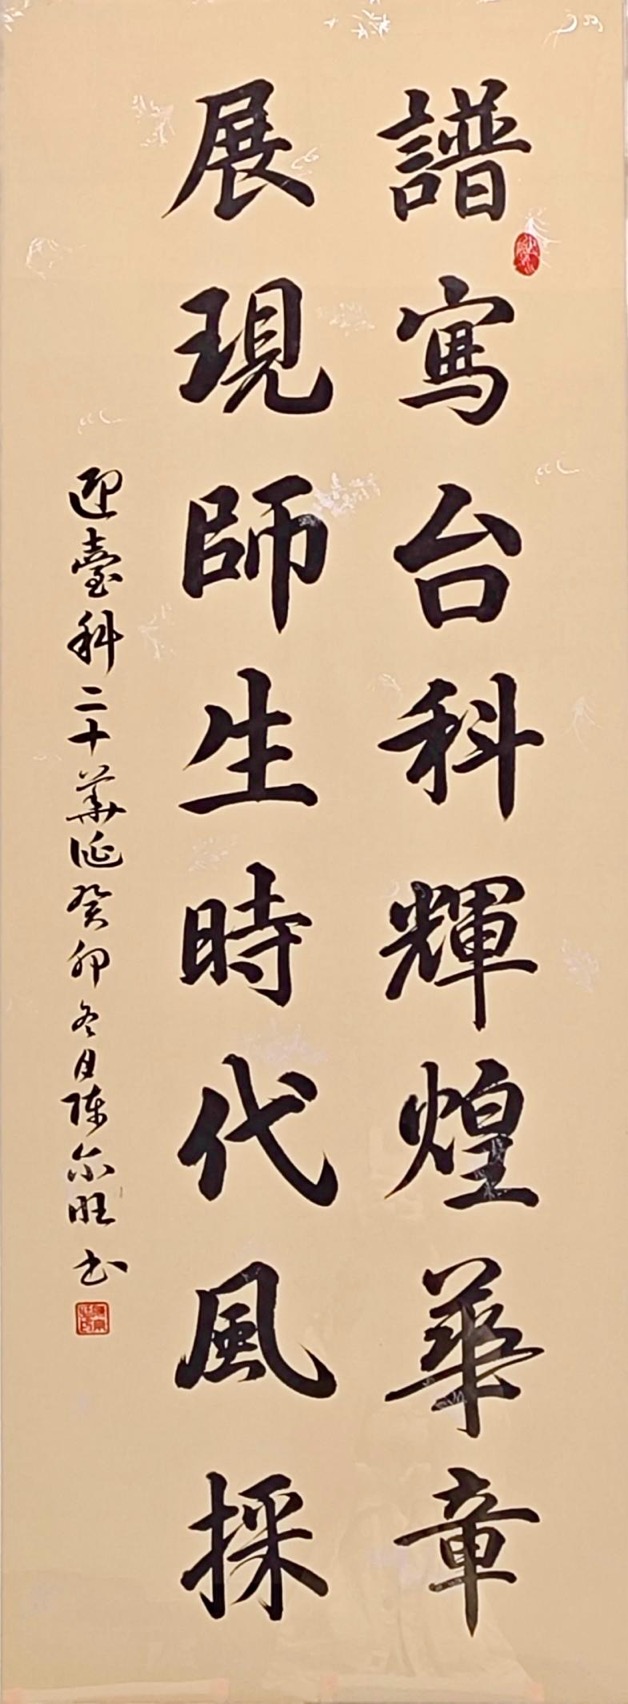 譜寫台科輝煌華章
展現師生時代風採
迎臺科二十華誕癸卯冬月陈尔旺书